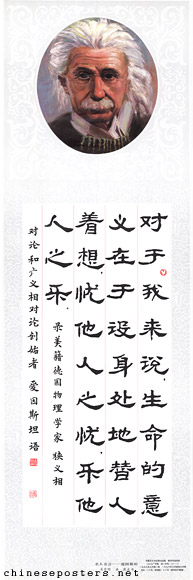 对于我来说，生命的意
义在于设身处地替人
着想，忧他人之忧，乐他
人之乐。
录美籍德国物理学家 狭义相
对论和广义相对论创始者 爱因斯坦语
chineseposters.net